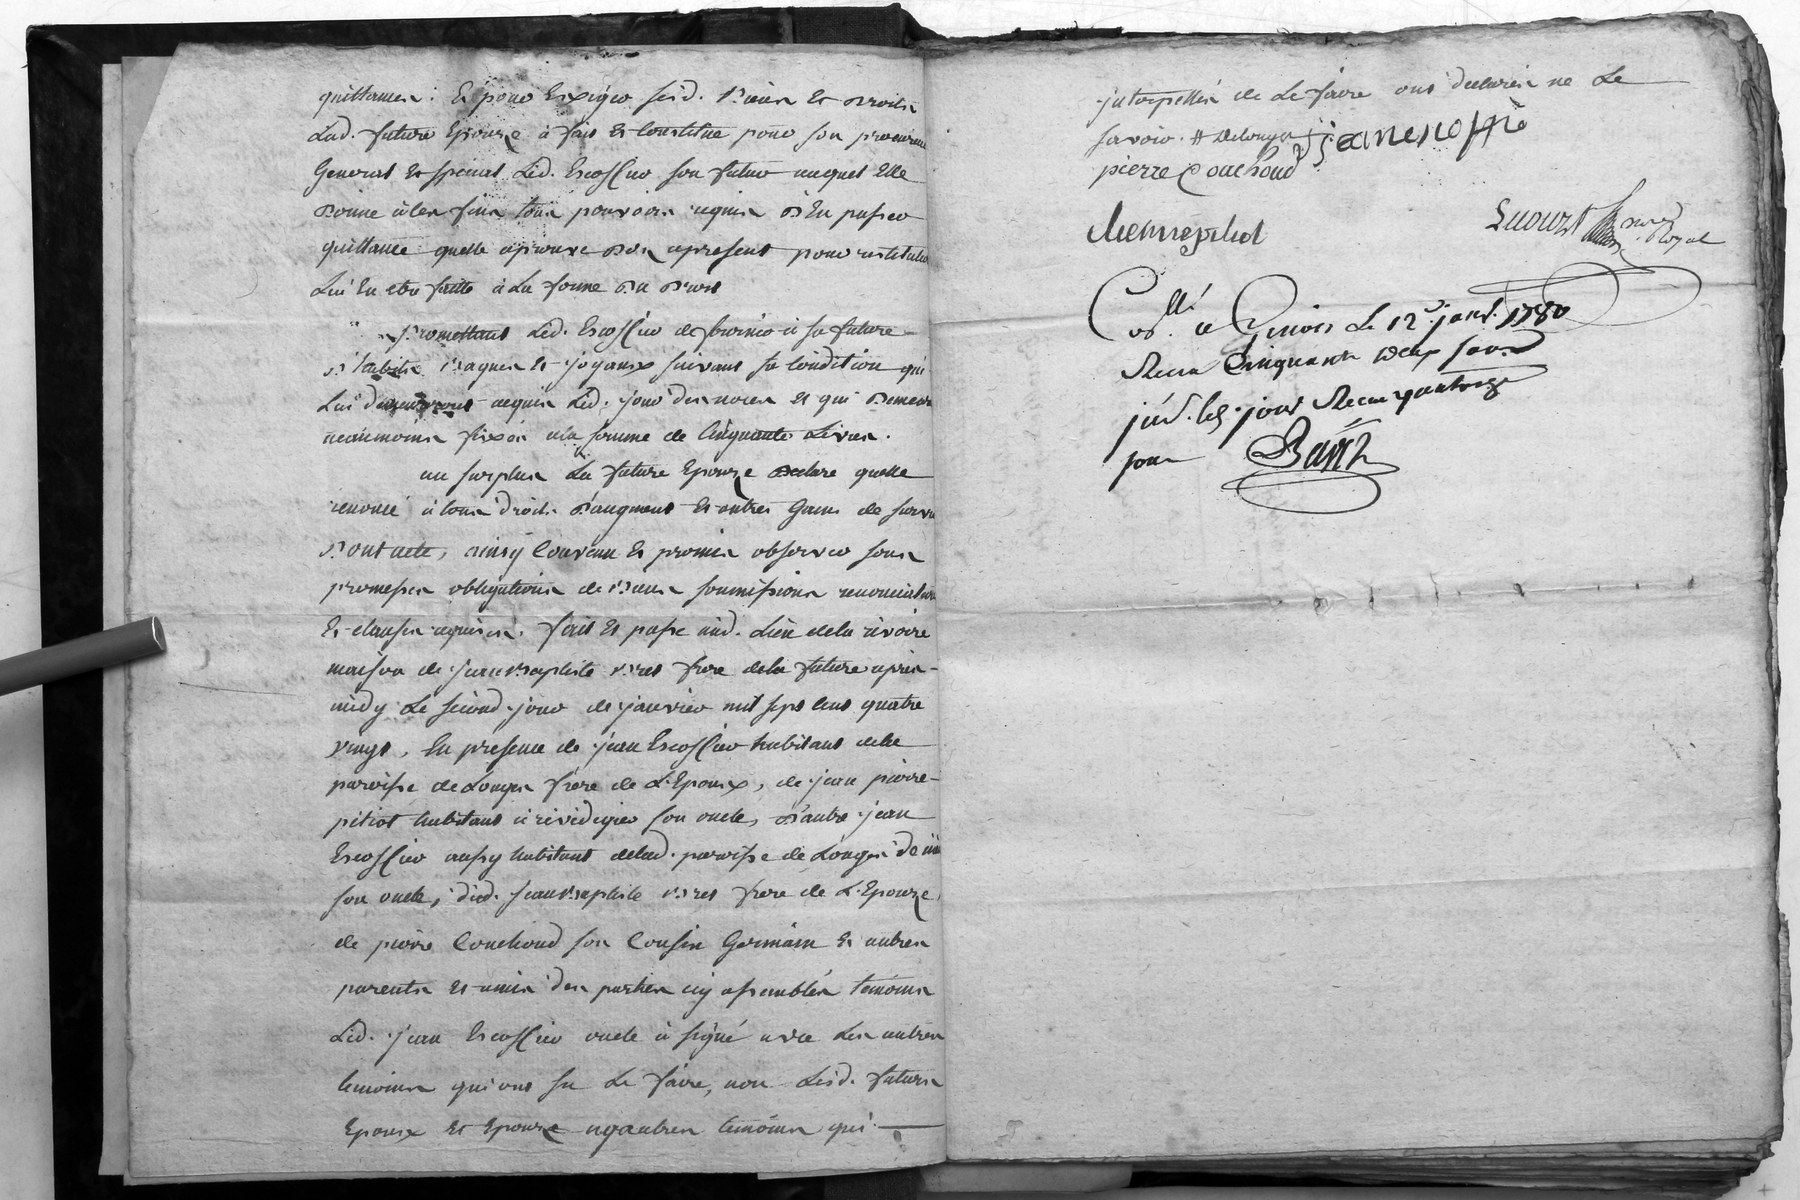 quittances. Et pour Exiger sesd. Biens Et Droits
Lad. future Epouze à fait Et Constitué pour son procureur
General Et special Led. Escoffier son futur auquel Elle
Donne à les fins tous pouvoirs requis D'En passer
quittance quelle aprouve Des apresent pour restitution
Lui En etre faitte à La forme Du Droit
Promettant Led. Escoffier de fournir à sa future
D'habits Bagues Et joyaux suivant sa Condition qui
Lui demeureront acquis Led. jour des noces Et qui Demeure
neaumoins fixés ala somme de Cinquante Livres.
au surplus La future Epouze Declare quelle
renonce à tous droits D'augment Et autres Gains de survie
Dont acte, ainsy Convenu Et promis observer sous
promesses obligations de Biens soumissions renonciations
Et clauses requises. fait Et passé aud. Lieu dela rivoire
maison de jean Baptiste Bret frere dela future apres
midy Le second jour de janvier mil sept Cent quatre
vingt, En presence de jean Escoffier habitant dela
paroisse de Longes frere de L'Epoux, de jean pierre
pitiot habitant à rivedegier son oncle, D'autre jean
Escoffier aussy habitant delad. paroisse de Longes
son oncle, dud. jean Baptiste Bret frere de L'Epouze,
de pierre Couchoud son Cousin Germain Et autres
parents Et amis des parties icy assemblés temoins
Led. jean Escoffier oncle à signé avec Les autres
temoins qui ont su Le faire, non Lesd. futurs
Epoux Et Epouze ny autres temoins qui
interpellés de Le faire ont declarés ne Le
savoir. #
pierre Couchoud
Royal
Coll. à Le 12 janv. 1780
Recu Cinquante deux sous
jnd. led. jour Recu quatorze
sous